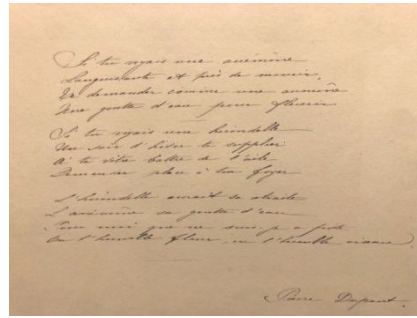 Si tu voyais une anémone
Languissante et près de mourir,
Te demander comme une aumône
Une goutte d'eau pour fleurir
Si tu voyais une hirondelle
Un soir d'hiver te supplier
À ta vitre battre de l'aile
Demander place à ton foyer
L'hirondelle aurait sa
L'anémone sa goutte d'eau
Pour moi que ne suis je
Ou l'humble fleur, ou l'humble oiseau.
Pierre Dupont.